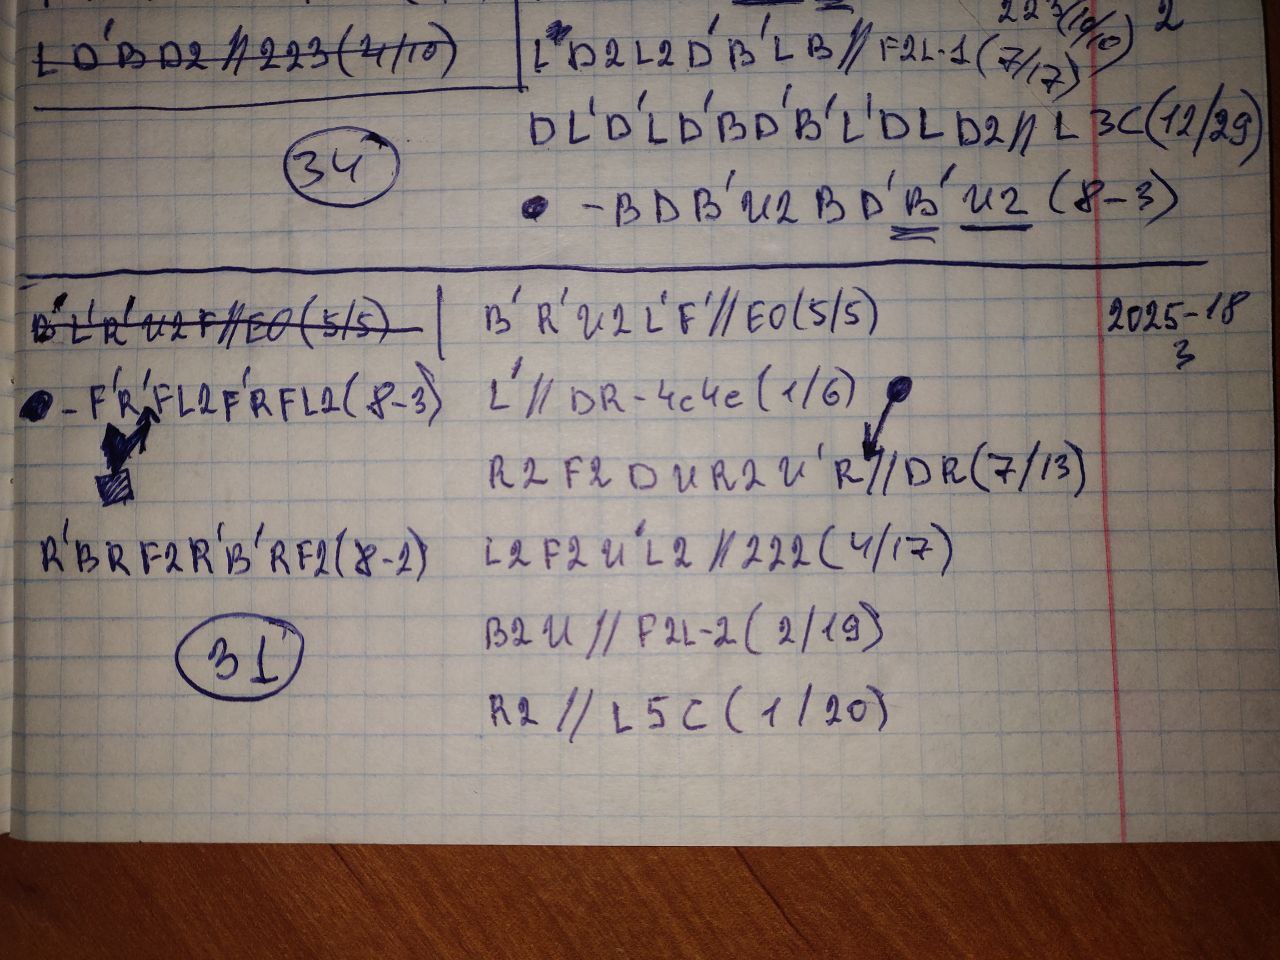 L D' B D2 // 223 (4/10)
223 (10/10) 2
L' D2 L2 D' B' L B // F2L-1 (7/17)
D L' D' L D' B D' B' L' D L D2 // L3C (12/29)
34
- B D B' U2 B D' B' U2 (8-3)
B' L' R' U2 F // EO (5/5)
B' R' U2 L' F' // EO (5/5)
2025-18
3
- F' R' F L2 F' R F L2 (8-3)
L' // DR-4c4e (1/6)
R2 F2 D U R2 U' R // DR (7/13)
R' B R F2 R' B' R F2 (8-2)
L2 F2 U' L2 // 222 (4/17)
31
B2 U // F2L-2 (2/19)
R2 // L5C (1/20)